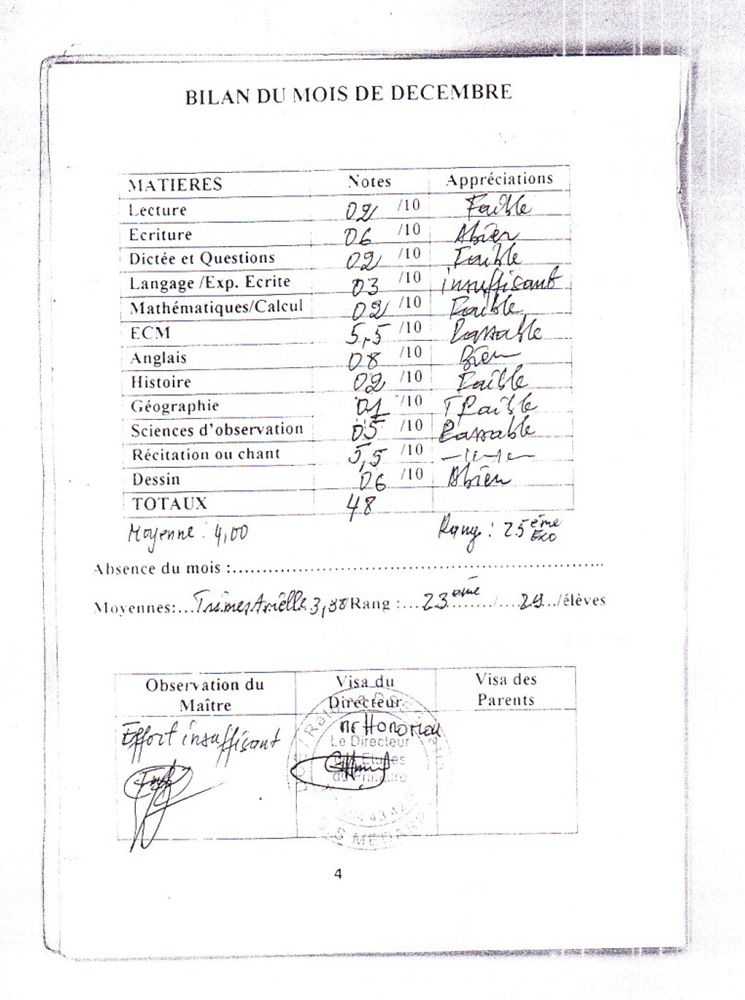 BILAN DU MOIS DE DECEMBRE
MATIERES Notes Appréciations
Lecture 02 /10 Faible
Ecriture 06 /10 Abien
Dictée et Questions 02 /10 Faible
Langage /Exp. Ecrite 03 /10 insuffisant
Mathématiques/Calcul 02 /10 Faible
ECM 5,5 /10 Passable
Anglais 08 /10 Bien
Histoire 02 /10 Faible
Géographie 01 /10 TFaible
Sciences d'observation 05 /10 Passable
Récitation ou chant 5,5 /10 -"-
Dessin 06 /10 Abien
TOTAUX 48
Moyenne : 4,00 Rang : 25 ème Exo
Absence du mois :
Moyennes:... Trimestrielle 3,88 Rang :... 23 ème ....../.... 29 .../élèves
Observation du Maître Visa du Directeur Visa des Parents
Effort insuffisant
Mr Honoré
Le Directeur
des Etudes
du Primaire
4